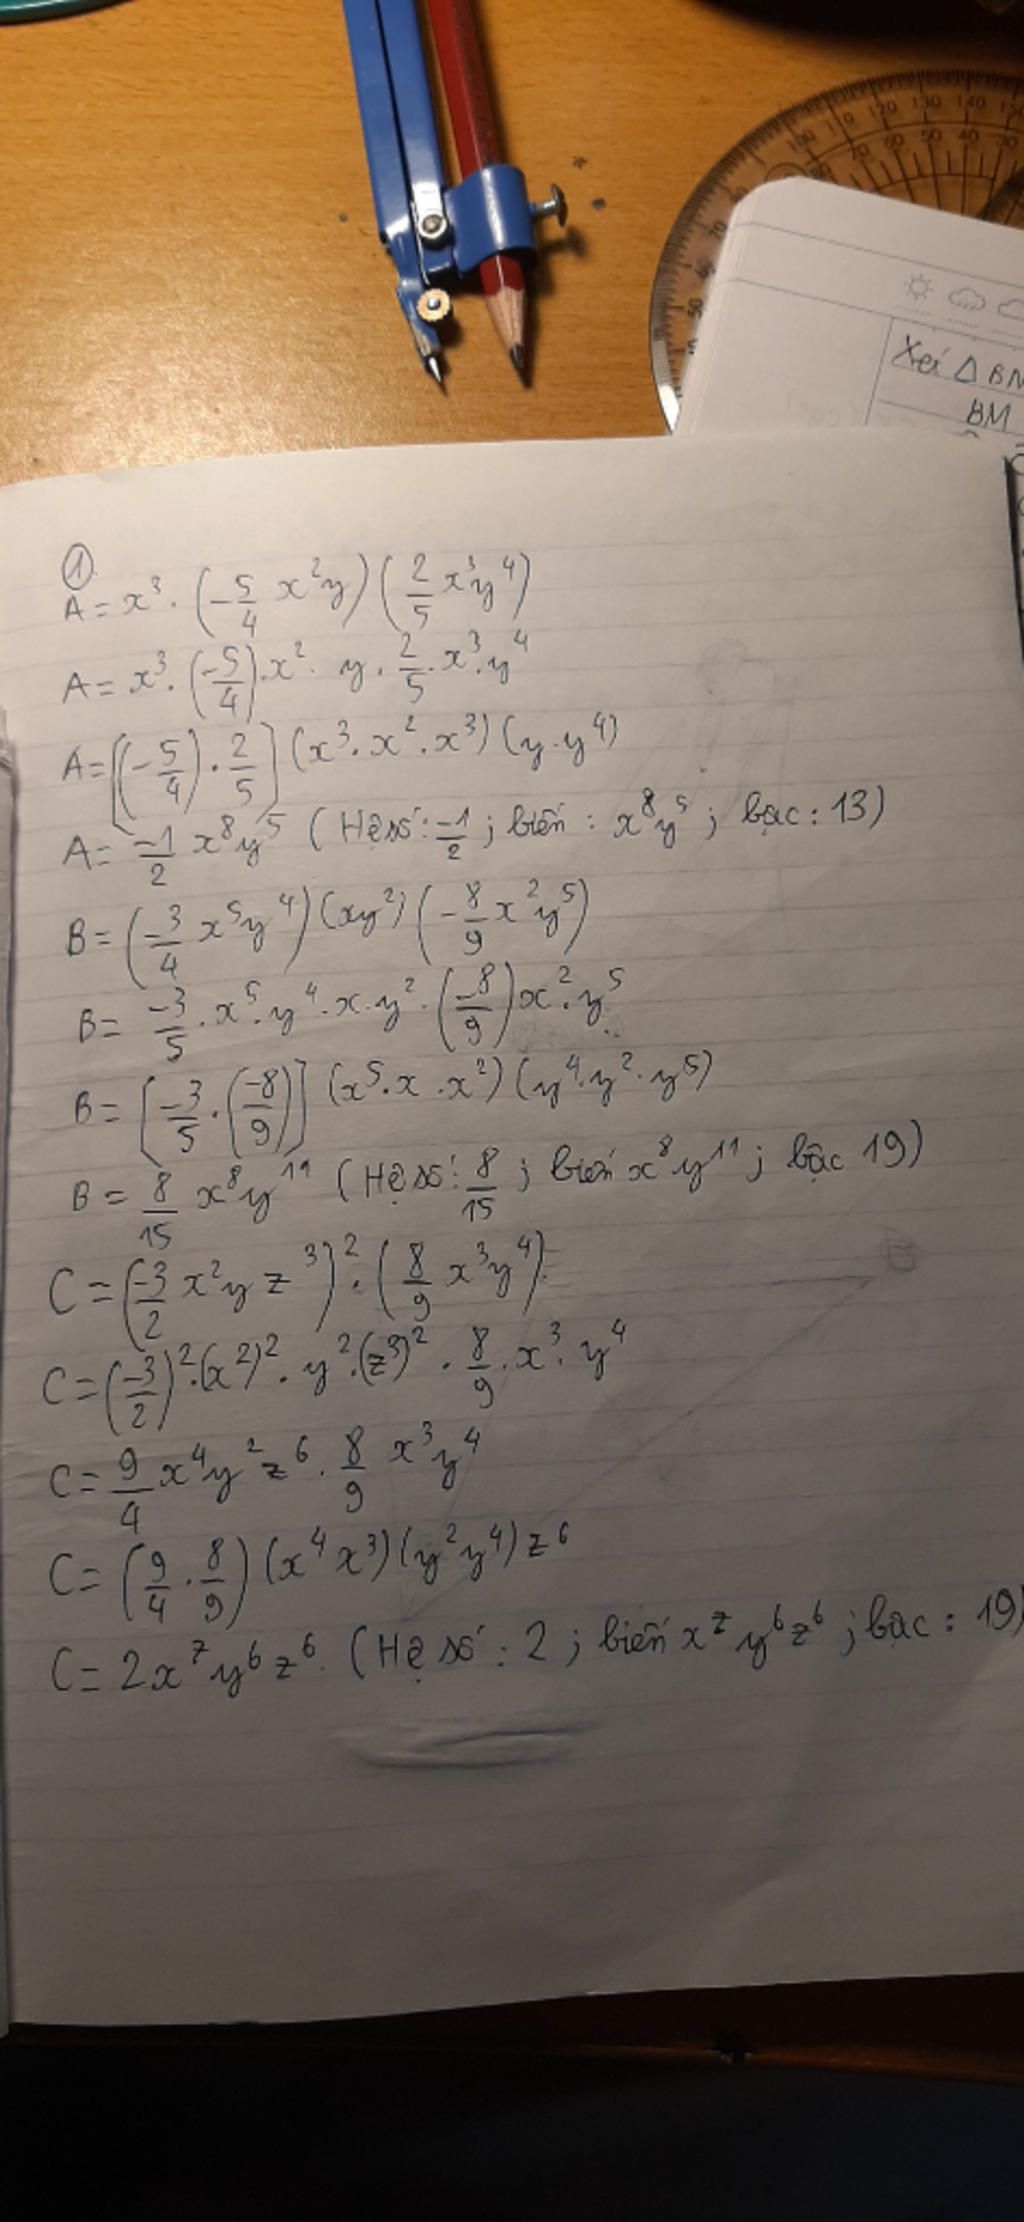 100 110 120 130 140 150
70 60 50 40 30
70
50
Xét Δ BM
BM
①
A = x³ . (-5/4 x²y) (2/5 x³y⁴)
A = x³ . (-5/4) . x² . y . 2/5 . x³ . y⁴
A = [(-5/4) . 2/5] (x³ . x² . x³) (y . y⁴)
A = -1/2 x⁸y⁵ (Hệ số : -1/2 ; biến : x⁸y⁵ ; bậc : 13)
B = (-3/4 x⁵y⁴) (xy²) (-8/9 x²y⁵)
B = -3/5 . x⁵ . y⁴ . x . y² . (-8/9) x² . y⁵
B = [-3/5 . (-8/9)] (x⁵ . x . x²) (y⁴ . y² . y⁵)
B = 8/15 x⁸y¹¹ (Hệ số : 8/15 ; biến x⁸y¹¹ ; bậc 19)
C = (-3/2 x²yz³)² . (8/9 x³y⁴)
C = (-3/2)² . (x²)² . y² . (z³)² . 8/9 . x³ . y⁴
C = 9/4 x⁴y²z⁶ . 8/9 x³y⁴
C = (9/4 . 8/9) (x⁴x³) (y²y⁴) z⁶
C = 2x⁷y⁶z⁶ (Hệ số : 2 ; biến x⁷y⁶z⁶ ; bậc : 19)